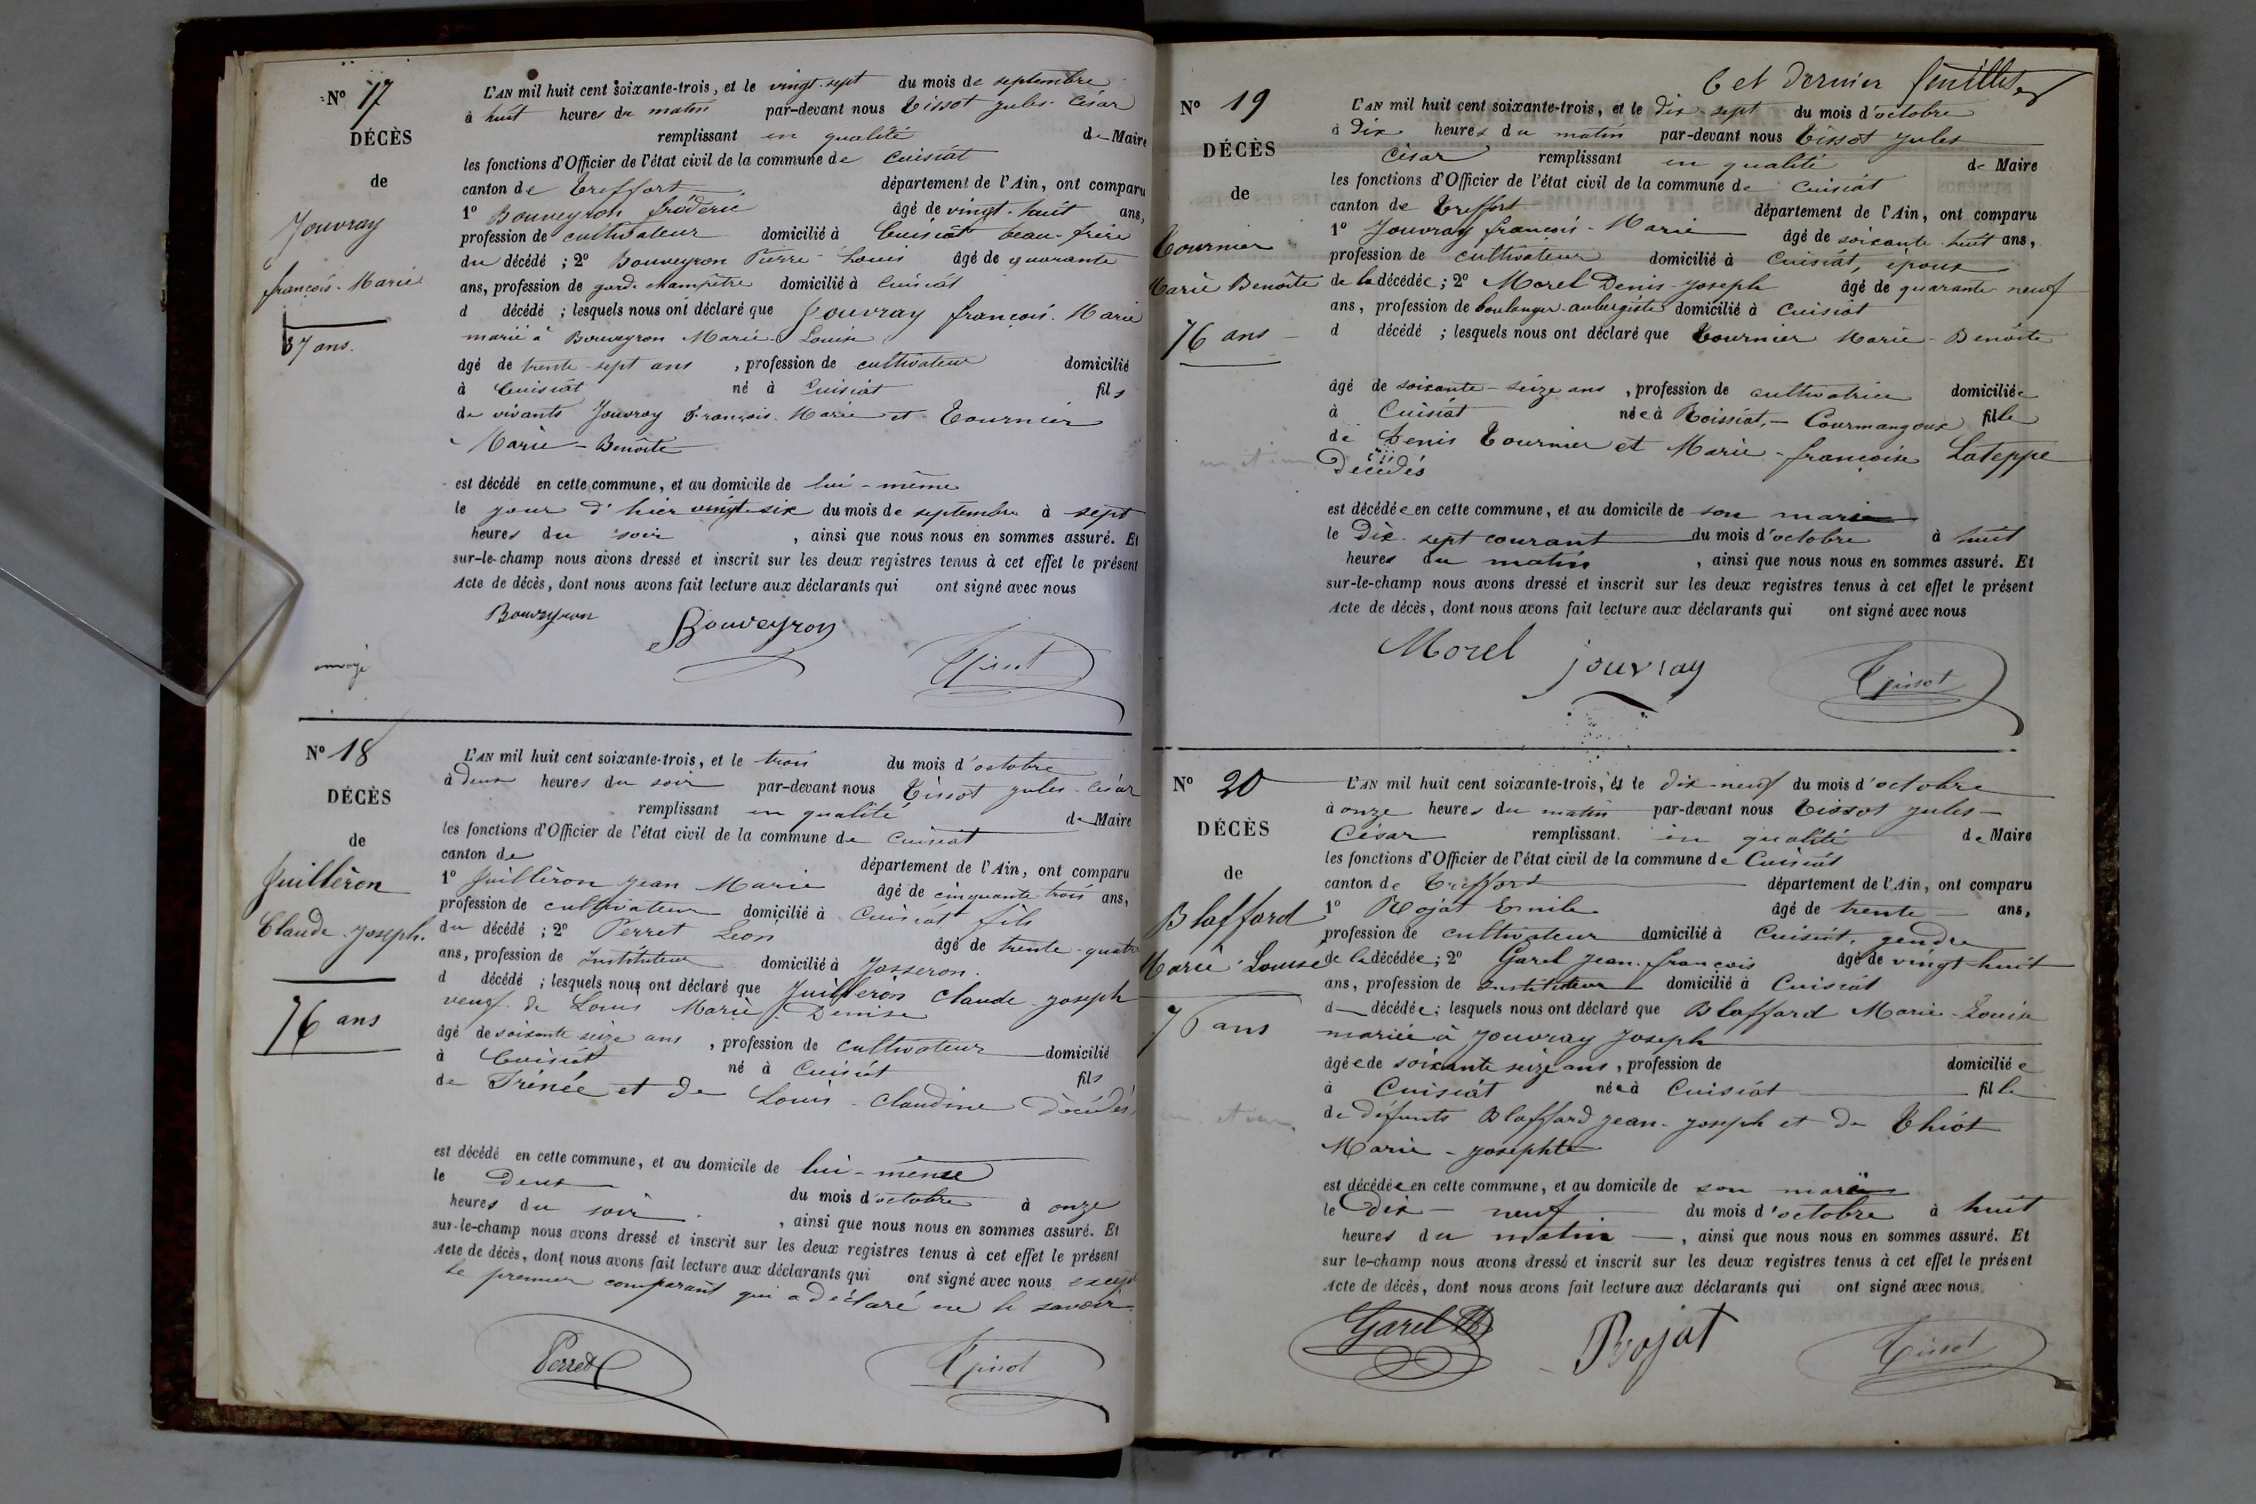 Nº 17
DÉCÈS
de
Jouvray
françois-Marie
37 ans.
L'AN mil huit cent soixante-trois, et le vingt-sept du mois de septembre
à huit heures du matin par-devant nous Tissot Jules-César
remplissant en qualité de Maire
les fonctions d'Officier de l'état civil de la commune de Cuisiat
canton de Treffort département de l'Ain, ont comparu
1º Bouveyron fréderic âgé de vingt-huit ans,
profession de cultivateur domicilié à Cuisiat beau-frère
du décédé ; 2º Bouveyron Pierre-Louis âgé de quarante
ans, profession de garde champêtre domicilié à Cuisiat
d décédé ; lesquels nous ont déclaré que Jouvray françois-Marie
marié à Bouveyron Marie-Louise
âgé de trente-sept ans , profession de cultivateur domicilié
à Cuisiat né à Cuisiat fils
de vivants Jouvray François-Marie et Tournier
Marie-Benoîte
est décédé en cette commune, et au domicile de lui-même
le jour d'hier vingt-six du mois de septembre à sept
heures du soir , ainsi que nous nous en sommes assuré. Et
sur-le-champ nous avons dressé et inscrit sur les deux registres tenus à cet effet le présent
Acte de décès, dont nous avons fait lecture aux déclarants qui ont signé avec nous
Bouveyron Bouveyron Tissot
Nº 18
DÉCÈS
de
Juilléron
Claude-Joseph.
76 ans
L'AN mil huit cent soixante-trois, et le trois du mois d'octobre
à deux heures du soir par-devant nous Tissot Jules-César
remplissant en qualité de Maire
les fonctions d'Officier de l'état civil de la commune de Cuisiat
canton de département de l'Ain, ont comparu
1º Juilléron Jean Marie âgé de cinquante trois ans,
profession de cultivateur domicilié à Cuisiat fils
du décédé ; 2º Perret Léon âgé de trente-quatre
ans, profession de Instituteur domicilié à Jasseron.
d décédé ; lesquels nous ont déclaré que Juilléron Claude-Joseph
veuf de Louis Marie Denise
âgé de soixante seize ans , profession de cultivateur domicilié
à Cuisiat né à Cuisiat fils
de Irénée et de Louis-Claudine décédés
est décédé en cette commune, et au domicile de lui-même
le deux du mois d'octobre à onze
heures du soir , ainsi que nous nous en sommes assuré. Et
sur-le-champ nous avons dressé et inscrit sur les deux registres tenus à cet effet le présent
Acte de décès, dont nous avons fait lecture aux déclarants qui ont signé avec nous excepté
le premier comparant qui a déclaré ne le savoir
Perret Tissot
6 et dernier feuillet
Nº 19
DÉCÈS
de
Tournier
Marie Benoîte
76 ans
L'AN mil huit cent soixante-trois, et le dix-sept du mois d'octobre
à dix heures du matin par-devant nous Tissot Jules
César remplissant en qualité de Maire
les fonctions d'Officier de l'état civil de la commune de Cuisiat
canton de Treffort département de l'Ain, ont comparu
1º Jouvray françois-Marie âgé de soixante-huit ans,
profession de cultivateur domicilié à Cuisiat, époux
de la décédée ; 2º Morel Denis-Joseph âgé de quarante-neuf
ans, profession de boulanger-aubergiste domicilié à Cuisiat
d décédé ; lesquels nous ont déclaré que Tournier Marie-Benoîte
âgé de soixante-seize ans , profession de cultivatrice domiciliée
à Cuisiat née à Roissiat,- Courmangoux fille
de Denis Tournier et Marie-françoise Lateppe
décédés
est décédée en cette commune, et au domicile de son mari
le dix-sept courant du mois d'octobre à huit
heures du matin , ainsi que nous nous en sommes assuré. Et
sur-le-champ nous avons dressé et inscrit sur les deux registres tenus à cet effet le présent
Acte de décès, dont nous avons fait lecture aux déclarants qui ont signé avec nous
Morel jouvray Tissot
Nº 20
DÉCÈS
de
Blaffard
Marie-Louise
76 ans
L'AN mil huit cent soixante-trois, et le dix-neuf du mois d'octobre
à onze heures du matin par-devant nous Tissot Jules-
César remplissant en qualité de Maire
les fonctions d'Officier de l'état civil de la commune de Cuisiat
canton de Treffort département de l'Ain, ont comparu
1º Rojat Emile âgé de trente ans,
profession de cultivateur domicilié à Cuisiat, gendre
de la décédée ; 2º Garel Jean-françois âgé de vingt-huit
ans, profession de Instituteur domicilié à Cuisiat
d décédée ; lesquels nous ont déclaré que Blaffard Marie-Louise
mariée à Jouvray Joseph
âgée de soixante seize ans , profession de domiciliée
à Cuisiat née à Cuisiat fille
de défunts Blaffard Jean-Joseph et de Thiot
Marie-Josephte
est décédée en cette commune, et au domicile de son mari
le Dix-neuf du mois d'octobre à huit
heures du matin , ainsi que nous nous en sommes assuré. Et
sur-le-champ nous avons dressé et inscrit sur les deux registres tenus à cet effet le présent
Acte de décès, dont nous avons fait lecture aux déclarants qui ont signé avec nous
Garel Rojat Tissot